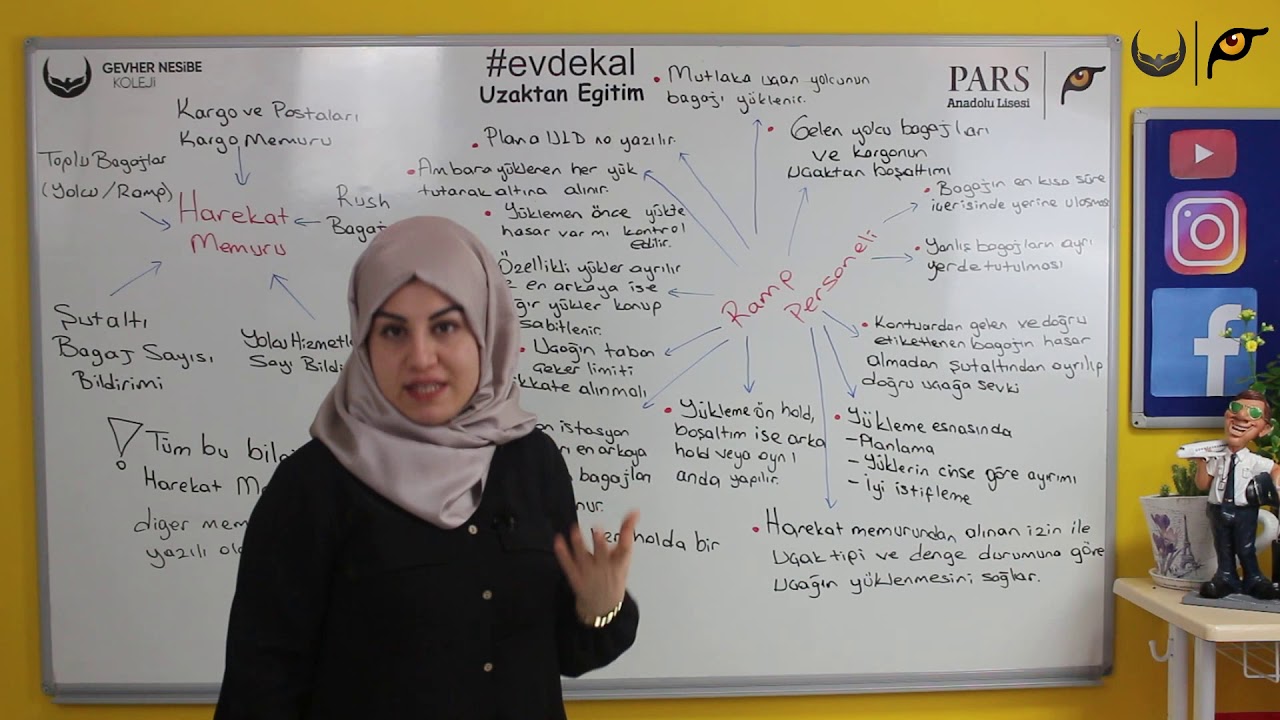 GEVHER NESIBE
KOLEJI
#evdekal
Uzaktan Egitim
PARS
Anadolu Lisesi
Kargo ve Postaları
Kargo Memuru
Toplu Bagajlar
(Yolcu / Ramp)
Harekat
Memuru
Rush
Şutaltı
Bagaj Sayısı
Bildirimi
Sayı
Tüm bu
Harekat
diger
yazılı
• Mutlaka uçan yolcunun
bagajı yüklenir.
• Plana ULD no yazılır.
• Ambara yüklenen her yük
tutarak altına alınır.
• Yüklemen önce yükte
hasar var mı kontrol
edilir.
Özellikli yükler ayrılır
en arkaya ise
yükler konup
sabitlenir.
• Uçağın taban
çeker limiti
alınmalı
istasyon
en arkaya
bagajları
holda bir
Ramp
Personeli
• Gelen yolcu bagajları
ve kargonun
uçaktan boşaltımı
• Bagajın en kısa süre
içerisinde yerine ulaşması
• Yanlış bagajların ayrı
yerde tutulması
• Kontuardan gelen ve doğru
etiketlenen bagajın hasar
almadan şutaltından ayrılıp
doğru uçağa sevki
• Yükleme ön hold,
boşaltım ise arka
hold veya aynı
anda yapılır.
• Yükleme esnasında
- Planlama
- Yüklerin cinse göre ayırımı
- İyi istifleme
• Harekat memurundan alınan izin ile
uçak tipi ve denge durumuna göre
uçağın yüklenmesini sağlar.